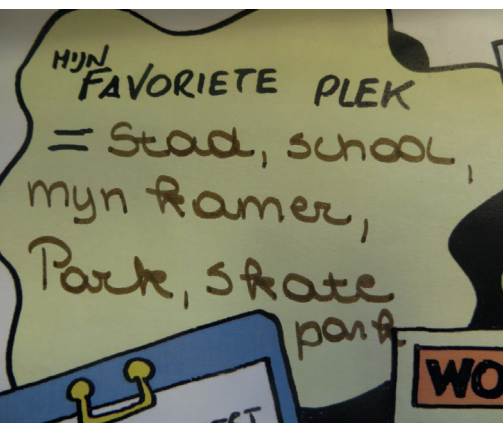 MIJN
FAVORIETE PLEK
= Stad, school,
myn kamer,
Park, skate
park
WO